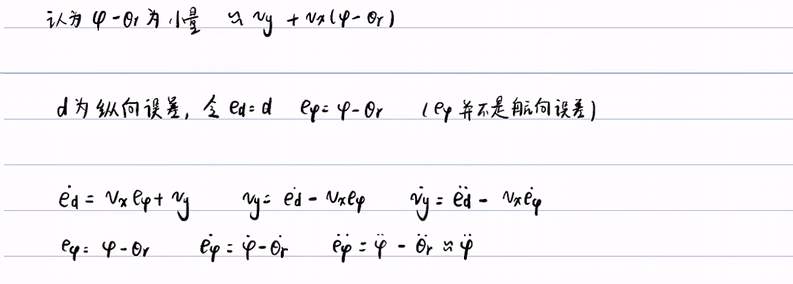 认为 φ-θr 为小量 ≈ vy + vx(φ-θr)
d为纵向误差, 令 ed=d eφ=φ-θr (eφ并不是航向误差)
ėd = vx eφ + vy vy = ėd - vx eφ v̇y = ëd - vx ėφ
eφ = φ-θr ėφ = φ̇-θ̇r ëφ = φ̈ - θ̈r ≈ φ̈